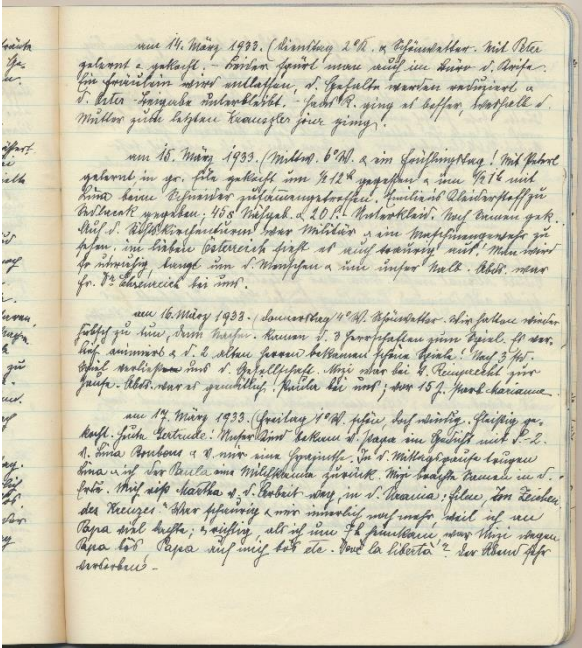 am 14. März 1933. (Dienstag 2° K. & Schönwetter. Mit Peter
gelernt & gekocht. – Leider spürt man auch im Büro d. Krise.
Ein Fräulein wird entlassen, d. Gehalte werden reduziert &
d. Oster- unterbleibt. – R. ging es besser, weshalb d.
Mutter zum letzten Jour ging.
am 15. März 1933. (Mittw. 6° W. & ein Frühlingstag! Mit Peterl
gelernt, in gr. Eile gekocht um ½12h gegessen & um ½1h mit
Lina beim Schneider zusammengetroffen. Emiliens Kleiderstoff zu
Sedlacek gegeben; 45 S & 20 S.- Unterkleid. Noch Samen gek.
Auf d. war Militär & ein Maschinengewehr zu
sehen. im lieben Österreich sieht es auch traurig aus! Man wird
so unruhig, bangt um d. Menschen & um unser Abds. war
Fr. Dr. bei uns.
am 16. März 1933. (Donnerstag 4° W. Schönwetter. Wir hatten wieder
hübsch zu tun, denn Nachm. kamen d. 3 Herrschaften zum Spiel. Es ver-
lief & d. 2 alten Herren bekamen schöne Spiele! Nach 3 Std.
Spiel verliessen uns d. Gesellschaft. Mizi war bei G. zur
Jause. Abds. war es gemütlich. Paula bei uns; vor 15 J. starb Marianne.
am 17. März 1933. (Freitag 4° W. schön, doch windig. Fleißig ge-
kocht. Heute Gertrude. Unser Kind bekam v. Papa ein Gedicht mit S.-2
v. Lina Bonbons & v. mir eine Hyazinthe. In d. Mittagspause trugen
Lina & ich der Paula eine Milchkanne zurück. Mizi brachte Samen in d.
Erde. Mich riß Martha v. d. Arbeit weg, in d. Urania: Film, „Im Zeichen
des Kreuzes“ War schaurig & mir innerlich noch mehr, weil ich an
Papa viel dachte; & richtig als ich um 7h heimkam war Mizi wegen
Papa bös, Papa auf mich bös etc. la libertà? Der Abend sehr
verdorben! –